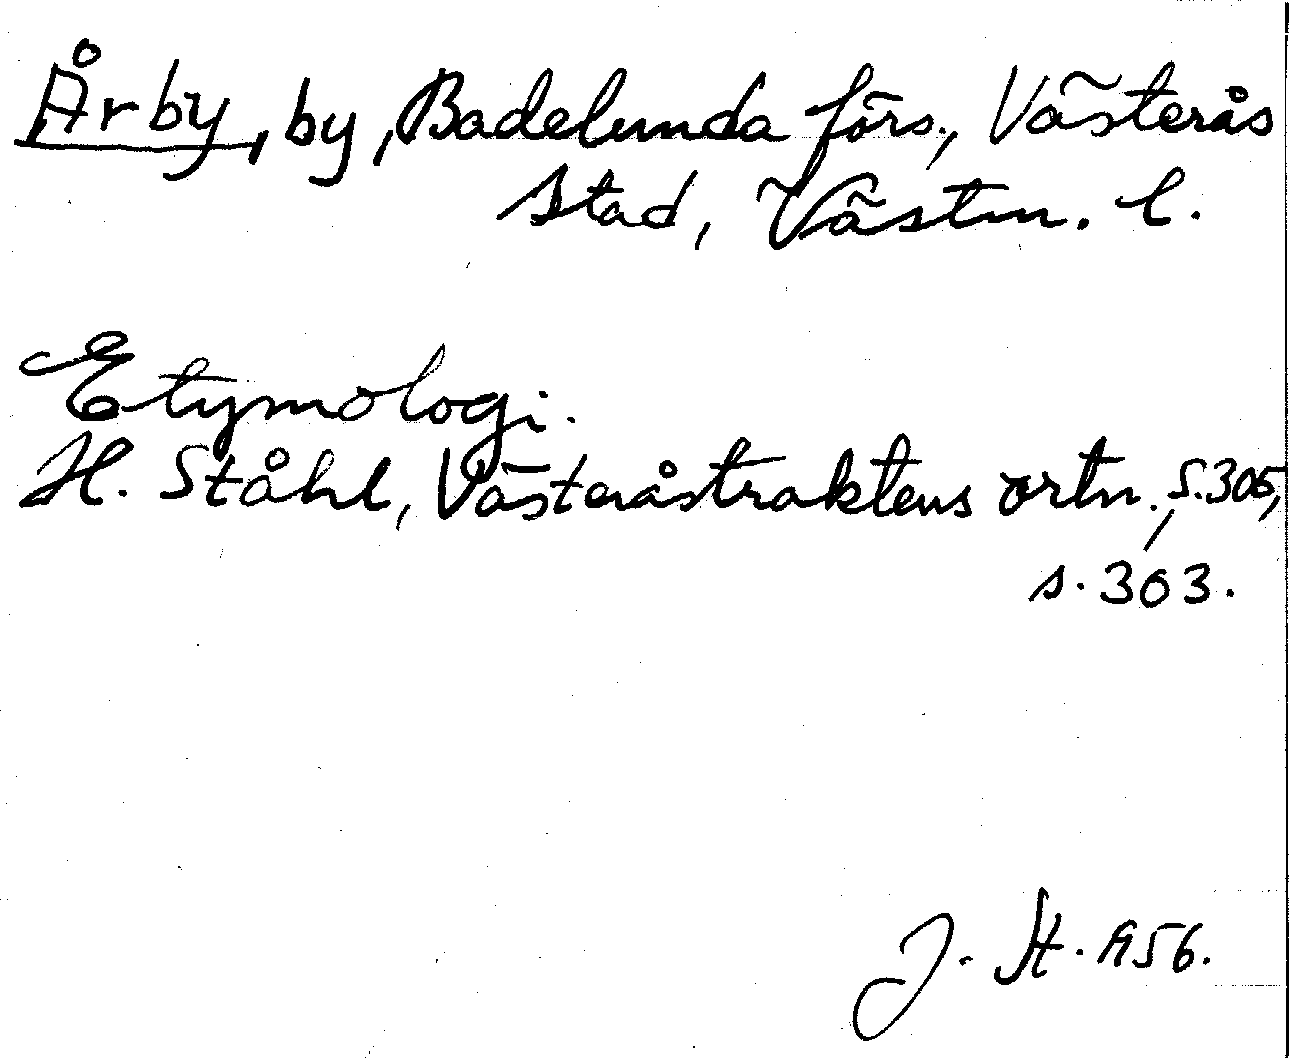 Årby, by, Badelunda förs., Västerås
stad, Västm. l.
Etymologi.
H. Ståhl, Västeråstraktens ortn., S.305,
s. 303.
J. St. 1956.